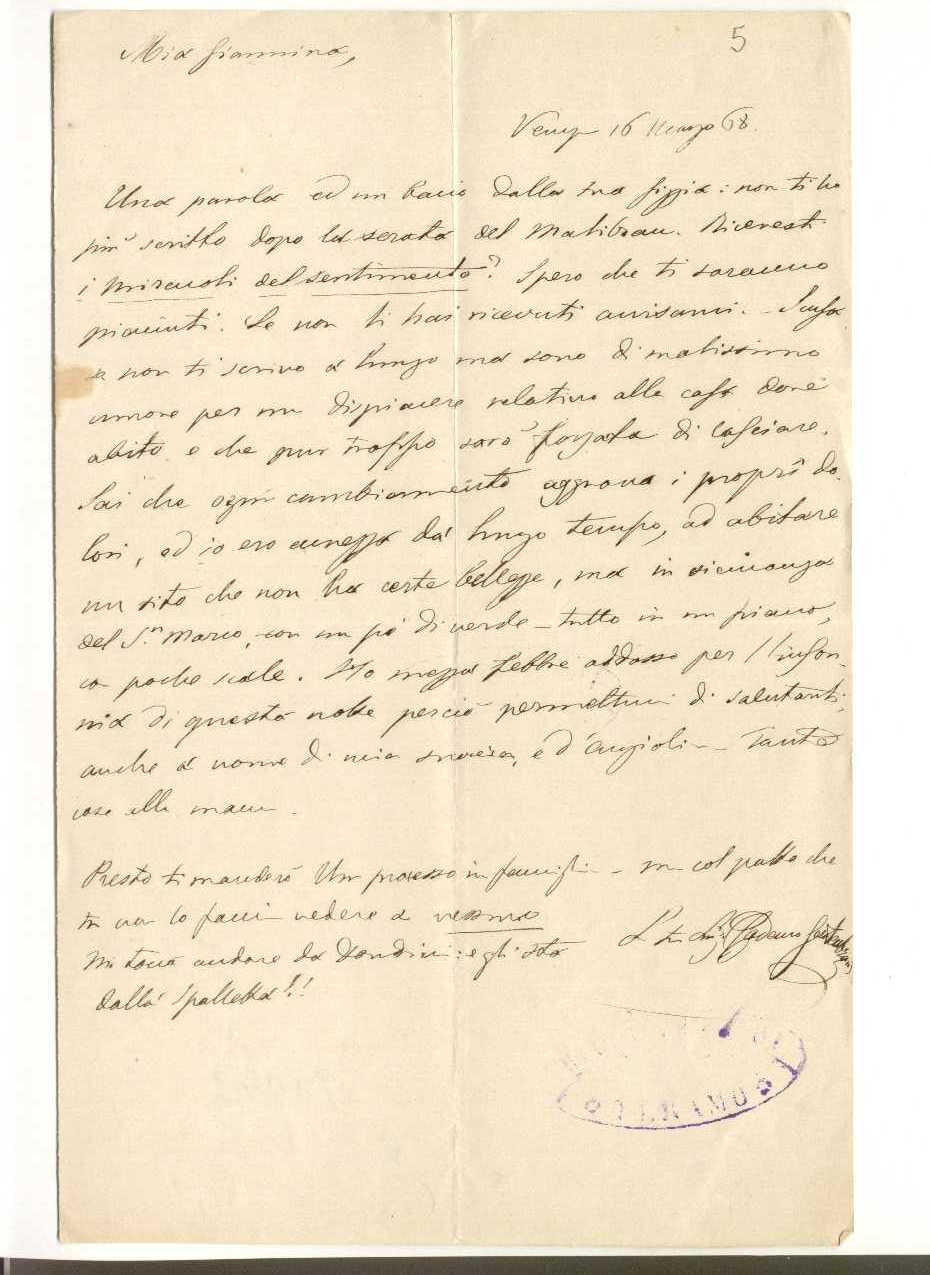 5
Mia Giannina,
16 Marzo 68.
Una parola ed un bacio dalla tua Gigia: non ti ho
più scritto dopo la serata del Malibran. Ricevesti
i miracoli del sentimento? Spero che ti saranno
piaciuti. Se non li hai ricevuti avvisami. - Scusa
se non ti scrivo a lungo ma sono di malissimo
umore per un dispiacere relativo alla casa dove
abito e che pur troppo sarò forzata di lasciare.
Sai che ogni cambiamento aggrava i proprî do-
lori, ed io ero avvezza da lungo tempo, ad abitare
un sito che non ha certe bellezze, ma in vicinanza
del S.n Marco, con un pò di verde - tutto in un piano,
con poche scale. Ho mezza febbre addosso per l'inson-
nia di questa notte perciò permettimi di salutarti,
anche a nome di mia suocera, e d'Angioli - Tante
cose alla mamma.
Presto ti manderò Un processo in famiglia - ma col patto che
tu non lo facci vedere a nessuno
Mi tocca andare da Dondini: egli sta
dalla Spalletta!!
TERAMO